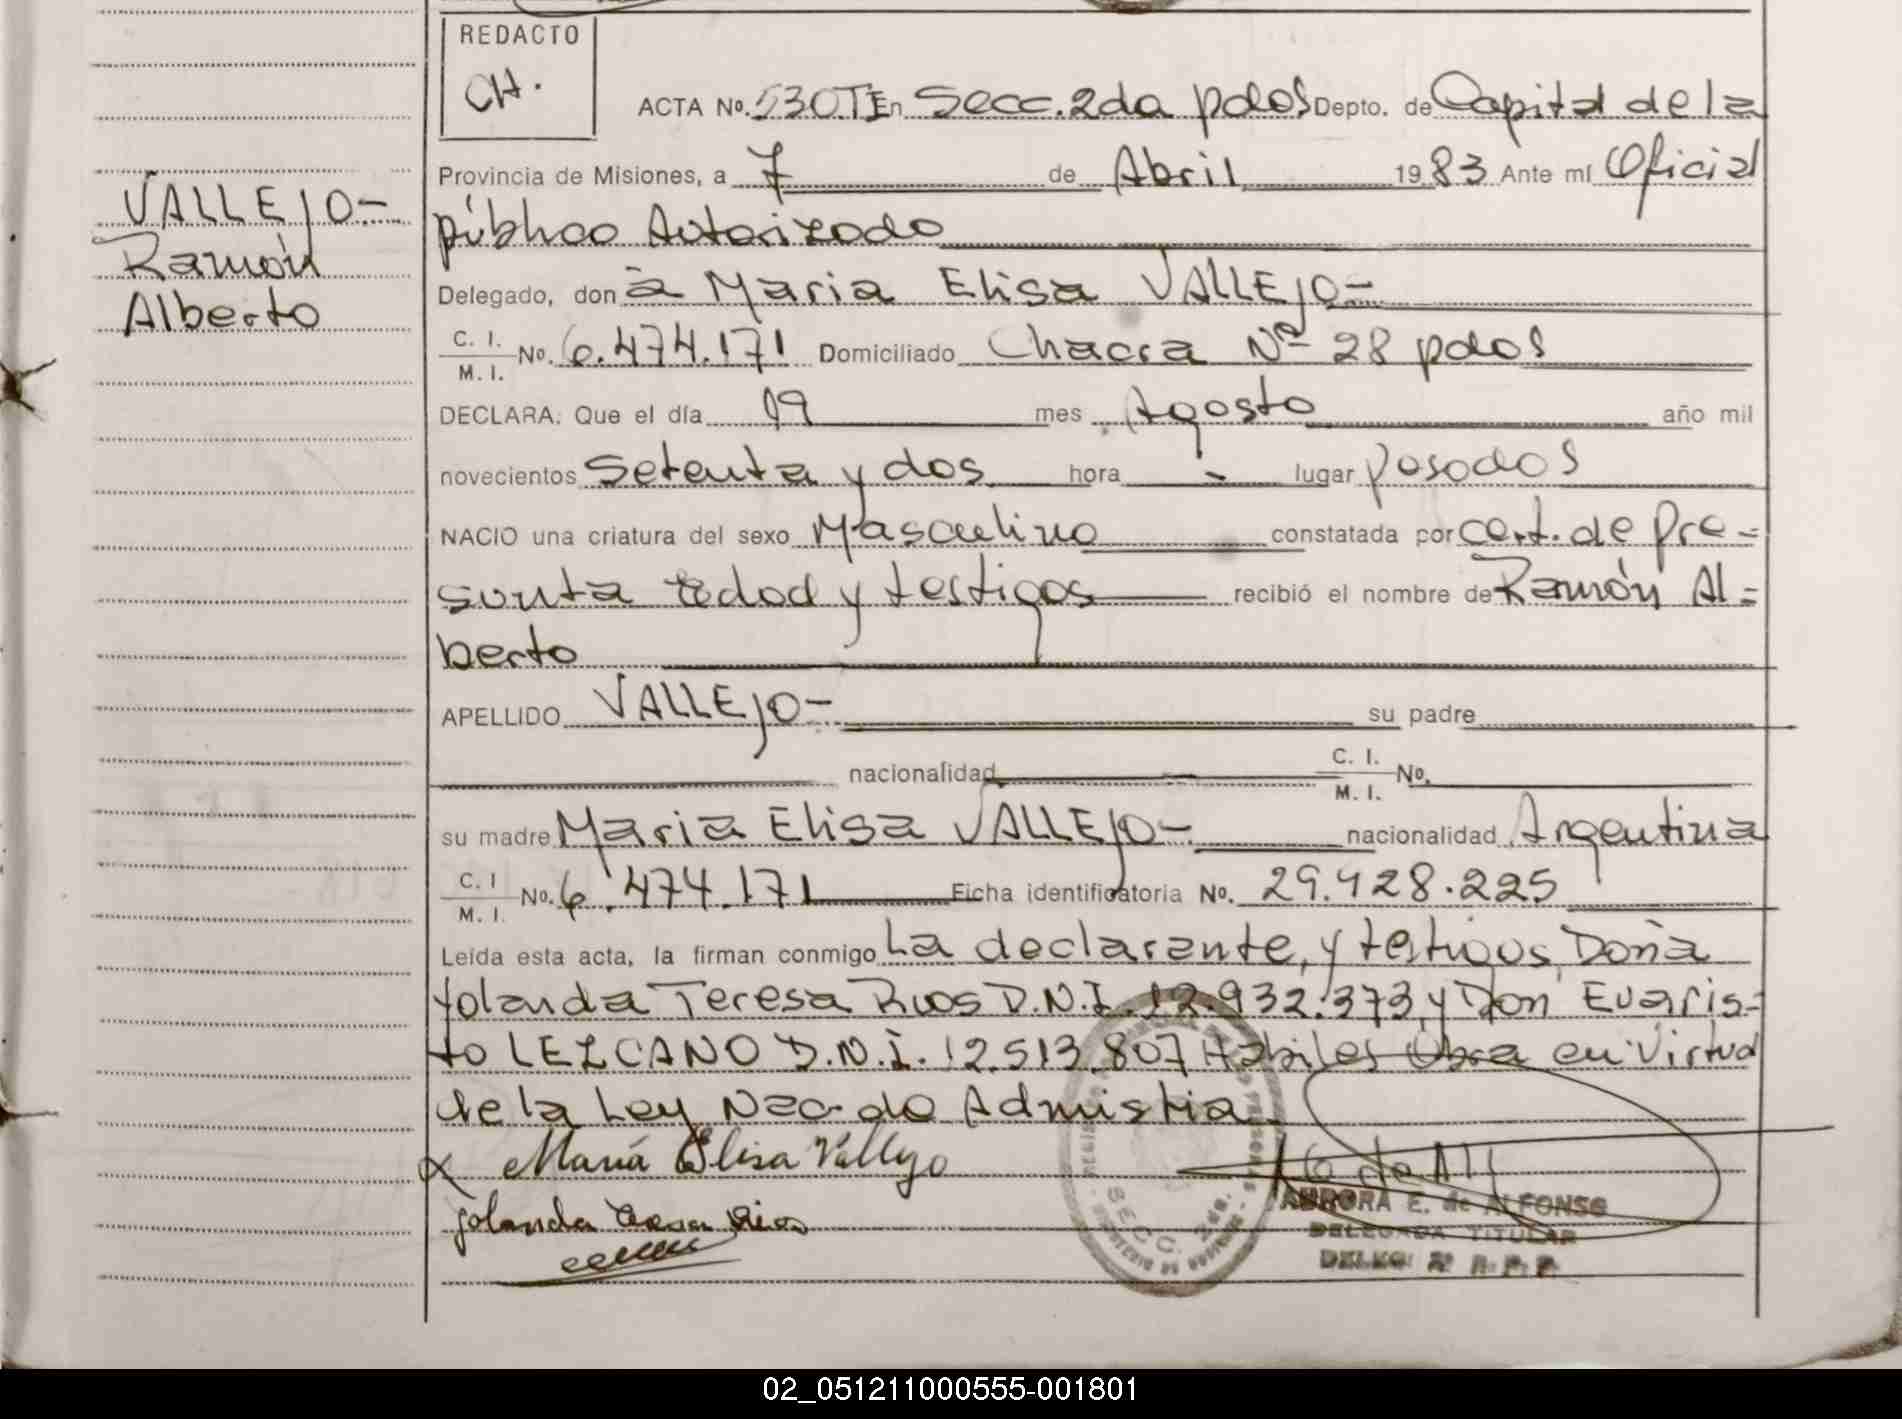 REDACTO
CH.
ACTA Nº. 530TI En Secc. 2da pdas Depto. de Capital de la
Provincia de Misiones, a 7 de Abril 1983 Ante mí Oficial
público Autorizado
VALLEJO-
Ramón
Alberto
Delegado, don a Maria Elisa VALLEJO-
C. I.
M. I. No. 6.474.171 Domiciliado Chacra Nº 28 pdas
DECLARA: Que el día 19 mes Agosto año mil
novecientos Setenta y dos hora - lugar posadas
NACIO una criatura del sexo Masculino constatada por cert. de Pre=
sunta edad y testigos recibió el nombre de Ramón Al=
berto
APELLIDO VALLEJO- su padre
nacionalidad C. I.
M. I. No.
su madre Maria Elisa VALLEJO- nacionalidad Argentina
C. I
M. I. No. 6.474.171 Ficha identificatoria No. 29.428.225
Leída esta acta, la firman conmigo La declarante, y testigos Doña
Yolanda Teresa Rios D.N.I. 12.932.373 y Don Evaris=
to LEZCANO D.N.I. 12.513.807 Habiles Obra en Virtud
de la Ley Nac. de Admistia
x María Elisa Vallejo
Yolanda Teresa Rios
SECC. 2da.
AURORA E. de ALFONSO
DELEGADA TITULAR
02_051211000555-001801